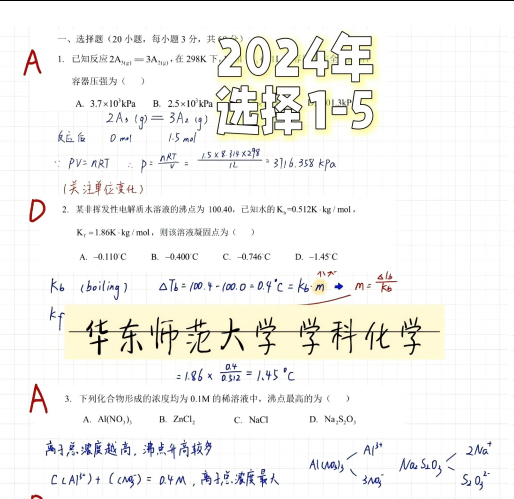 2024年
选择1-5
一、选择题（20 小题，每小题 3 分，共
A
1. 已知反应2A₃(g) ═ 3A₂(g)，在 298K 下
容器压强为（    ）
A. 3.7×10³kPa    B. 2.5×10³kPa
2A₃ (g) = 3A₂ (g)
反应后 0 mol 1.5 mol
∵ PV=nRT ∴ p= nRT/V = 1.5×8.314×298/1L =3716.358 kPa
(关注单位变化)
D
2. 某非挥发性电解质水溶液的沸点为 100.40，已知水的K_b=0.512K·kg / mol，
K_f =1.86K·kg / mol，则该溶液凝固点为（    ）
A. −0.110℃    B. −0.400℃    C. −0.746℃    D. −1.45℃
Kb (boiling) ΔTb=100.4-100.0=0.4℃=Kb·m → m= ΔTb/Kb
Kf
华东师范大学 学科化学
=1.86 × 0.4/0.512 = 1.45 ℃
A
3. 下列化合物形成的浓度均为 0.1M 的稀溶液中，沸点最高的为（    ）
A. Al(NO₃)₃    B. ZnCl₂    C. NaCl    D. Na₂S₂O₃
离子总浓度越高，沸点升高较多
C(Al³⁺)+ C(NO₃⁻) = 0.4M，离子总浓度最大
Al(NO₃)₃ Al³⁺ 3NO₃⁻ Na₂S₂O₃ 2Na⁺ S₂O₃²⁻